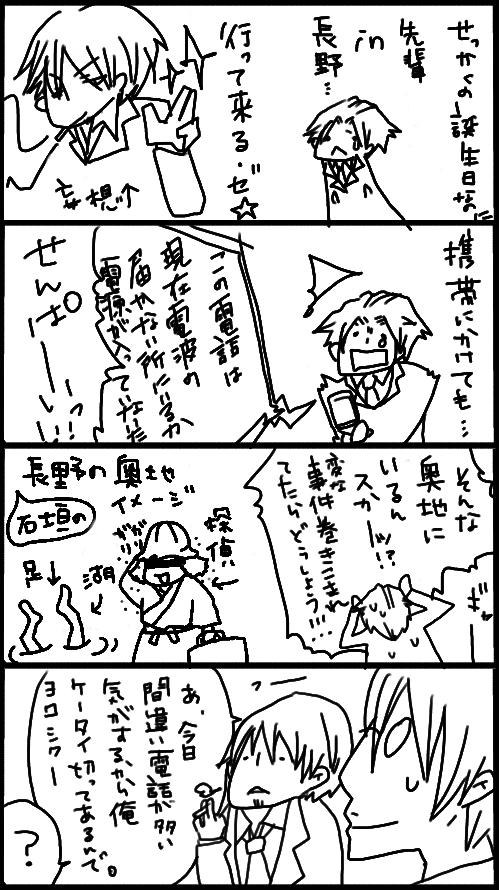 せっかくの誕生日なに
先輩
in
長野…
行って来る・ゼ☆
妄想↑
携帯にかけても…
この電話は
現在電波の
届かない所にいるか、
電源が入っていない
せんぱーーーい!!
そんな
奥地に
いるん
スかーッ!?
変な
事件巻きこまれ
てたらどうしよう…!!
長野の奥地
イメージ
石垣の
探偵
ガリガリ
湖
足↓
あ、今日
間違い電話が多い
気がするから俺
ケータイ切ってあるんで。
ヨロシクー
?